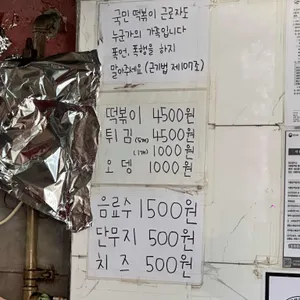 국민 떡볶이 근로자도
누군가의 가족입니다
폭언, 폭행을 하지
말아주세요 (근기법 제107조)
떡볶이 4500원
튀김 (5개) 4500원
(1개) 1000원
오뎅 1000원
음료수 1500원
단무지 500원
치즈 500원